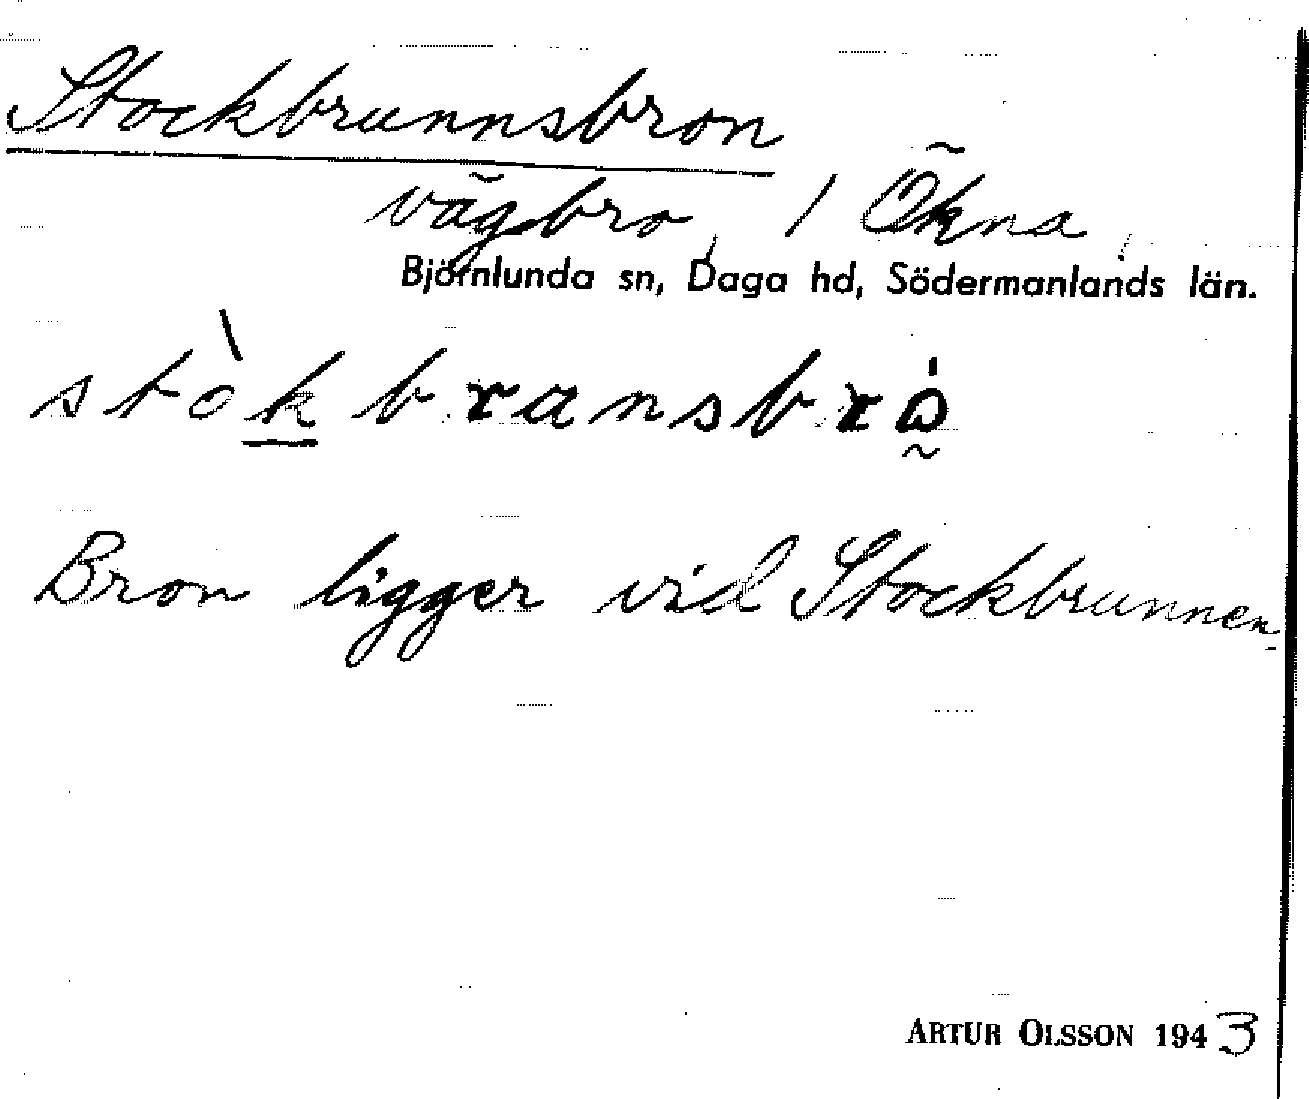 Stockbrunnsbron
vägbro, / Ökna,
Björnlunda sn, Daga hd, Södermanlands län.
stòkbransbrώ̣
Bron ligger vid Stockbrunnen.
ARTUR OLSSON 1943